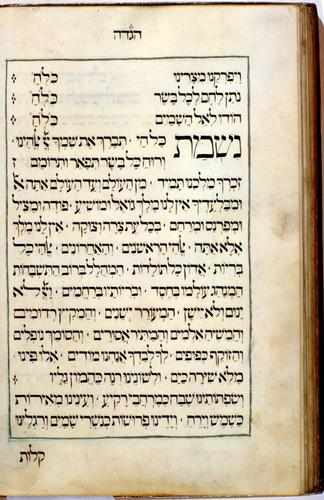 הגדה
ויפרקנו מצרינו כלח׳
נתן לחם לכל בשר כלח׳
הודו לאל השמים כלח׳
נשמת כל חי׳ תברך את שמך
ורוח כל בשר תפאר ותרומם׳
זכרך מלכנו תמיד׳ מן העולם ועד העולם אתה
ומבלעדיך אין לנו מלך גואל ומושיע׳ פודה ומציל
ומפרנס ומרחם׳ בכל עת צרה וצוקה׳ אין לנו מלך
אלא אתה׳ הראשונים׳ והאחרונים׳ כל
בריות׳ אדון כל תולדות׳ המהלל ברוב התשבחות
המנהג עולמו בחסד׳ ובריותיו ברחמים׳ לא
ינום ולא יישן׳ המעורר ישנים׳ והמקיץ רדומים
והמשיח אלמים׳ והמתיר אסורים׳ והסומך נופלים
והזוקף כפופים׳ לך לבדך אנחנו מודים׳ אלו פינו׳
מלא שירה כים׳ ולשוננו רנה כהמון גליו
ושפתותינו שבח כמרחבי רקיע׳ ועינינו מאירות
כשמש וירח׳ וידינו פרושות כנשרי שמים׳ ורגלינו
קלות